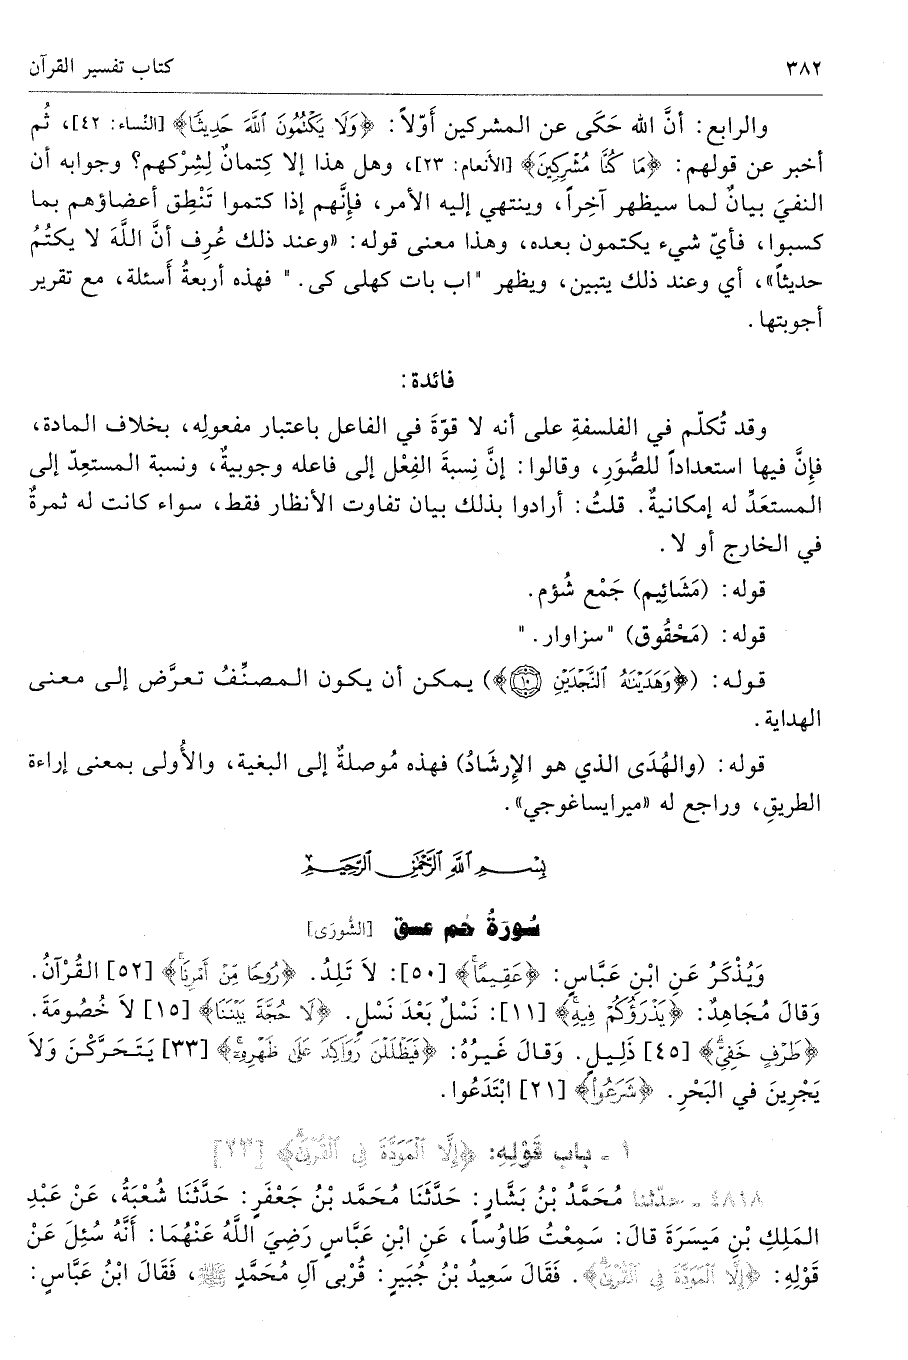 ٣٨٢ كتاب تفسير القرآن
والرابع: أنَّ الله حَكَى عن المشركين أوّلاً: ﴿وَلَا يَكْتُمُونَ ٱللَّهَ حَدِيثًا﴾ [النساء: ٤٢]، ثُم
أخبر عن قولهم: ﴿مَا كُنَّا مُشْرِكِينَ﴾ [الأنعام: ٢٣]، وهل هذا إلا كِتمانٌ لِشِرْكهم؟ وجوابه أن
النفيَ بيانٌ لما سيظهر آخِراً، وينتهي إليه الأمر، فإِنَّهم إذا كتموا تَنْطِق أعضاؤهم بما
كسبوا، فأيّ شيء يكتمون بعده، وهذا معنى قوله: «وعند ذلك عُرِف أنَّ اللَّهَ لا يكتُمُ
حديثاً»، أي وعند ذلك يتبين، ويظهر "اب بات كهلى كى." فهذه أربعةُ أَسئلة، مع تقرير
أجوبتها.
فائدة:
وقد تُكلّم في الفلسفةِ على أنه لا قوّةَ في الفاعل باعتبار مفعولِه، بخلاف المادة،
فإِنَّ فيها استعداداً للصُّوَرِ، وقالوا: إنَّ نِسبةَ الفِعْل إلى فاعله وجوبيةٌ، ونسبة المستعِدّ إلى
المستعَدِّ له إمكانيةٌ. قلتُ: أرادوا بذلك بيان تفاوت الأنظار فقط، سواء كانت له ثمرةٌ
في الخارج أو لا.
قوله: (مَشَائِيم) جَمْع شُؤم.
قوله: (مَحْقُوق) "سزاوار."
قوله: (﴿وَهَدَيْنَٰهُ ٱلنَّجْدَيْنِ ۝١٠﴾) يمكن أن يكون المصنِّفُ تعرَّض إلى معنى
الهداية.
قوله: (والهُدَى الذي هو الإِرشَادُ) فهذه مُوصلةٌ إلى البغية، والأُولى بمعنى إراءة
الطريقِ، وراجع له «ميرايساغوجي».
بِسْمِ ٱللَّهِ ٱلرَّحْمَٰنِ ٱلرَّحِيمِ
سُورَةُ حٰم عسق [الشُّورَى]
وَيُذْكَرُ عَنِ ابْنِ عَبَّاسٍ: ﴿عَقِيمًا﴾ [٥٠]: لاَ تَلِدُ. ﴿رُوحًا مِّنْ أَمْرِنَا﴾ [٥٢] القُرْآنُ.
وَقالَ مُجَاهِدٌ: ﴿يَذْرَؤُكُمْ فِيهِ﴾ [١١]: نَسْلٌ بَعْدَ نَسْلٍ. ﴿لَا حُجَّةَ بَيْنَنَا﴾ [١٥] لاَ خُصُومَةَ.
﴿طَرْفٍ خَفِيٍّ﴾ [٤٥] ذَلِيلٍ. وَقالَ غَيرُهُ: ﴿فَيَظْلَلْنَ رَوَاكِدَ عَلَىٰ ظَهْرِهِ﴾ [٣٣] يَتَحَرَّكْنَ وَلاَ
يَجْرِينَ في البَحْرِ. ﴿شَرَعُوا﴾ [٢١] ابْتَدَعُوا.
١ ـ باب قَوْلِهِ: ﴿إِلَّا ٱلْمَوَدَّةَ فِي ٱلْقُرْبَىٰ﴾ [٢٣]
٤٨١٨ ـ حدّثنا مُحَمَّدُ بْنُ بَشَّارٍ: حَدَّثَنَا مُحَمَّد بْنُ جَعْفَرٍ: حَدَّثَنَا شُعْبَةُ، عَنْ عَبْدِ
المَلِكِ بْنِ مَيسَرَةَ قالَ: سَمِعْتُ طَاوُساً، عَنِ ابْنِ عَبَّاسٍ رَضِيَ اللَّهُ عَنْهُمَا: أَنَّهُ سُئِلَ عَنْ
قَوْلِهِ: ﴿إِلَّا ٱلْمَوَدَّةَ فِي ٱلْقُرْبَىٰ﴾. فَقَالَ سَعِيدُ بْنُ جُبَيرٍ: قُرْبى آلِ مُحَمَّدٍ ﷺ، فَقَالَ ابْنُ عَبَّاسٍ: